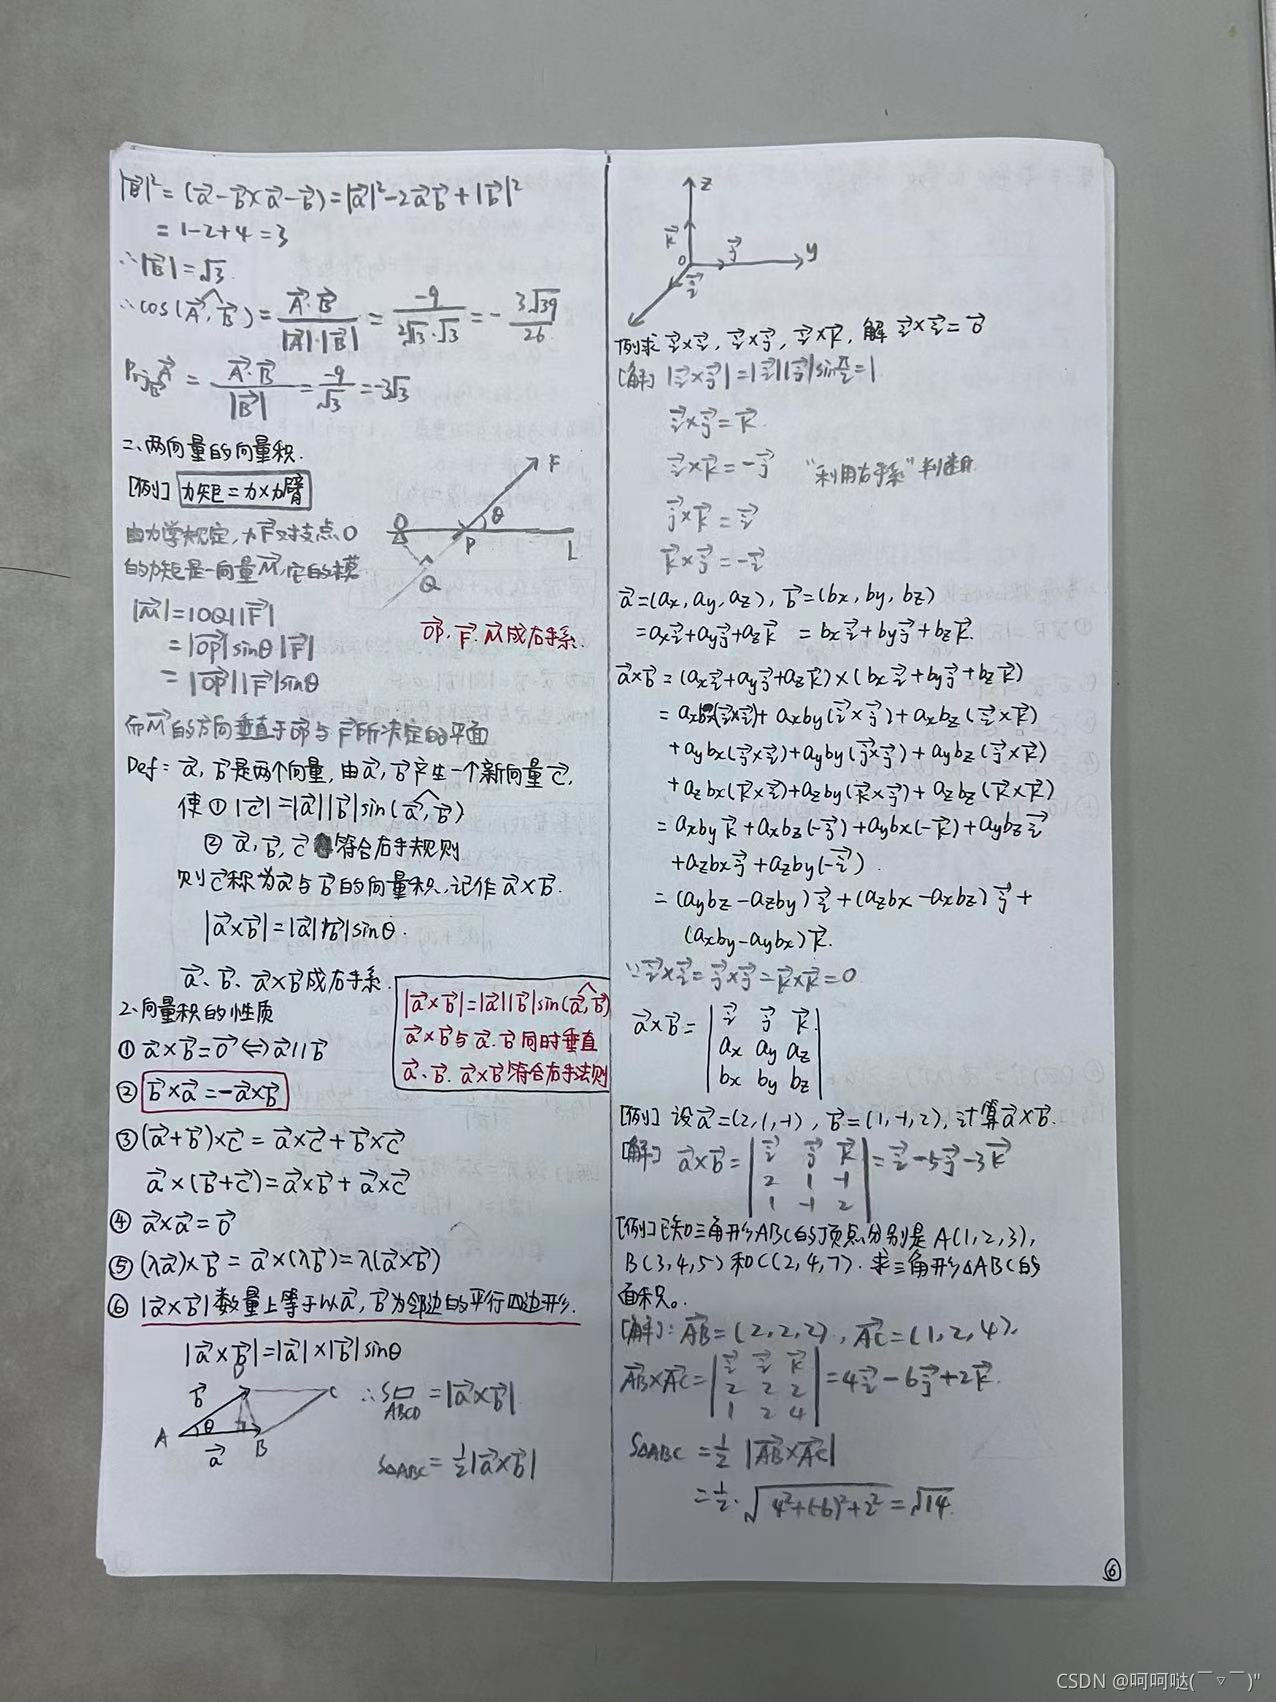 |B⃗|² = (a⃗-b⃗)(a⃗-b⃗) = |a⃗|²-2a⃗b⃗+|b⃗|²
= 1-2+4 = 3
∴|B⃗| = √3.
∴cos(A⃗,B⃗) = A⃗·B⃗/|A⃗|·|B⃗| = -9/2√13·√3 = -3√39/26
Prj_B⃗ A⃗ = A⃗·B⃗/|B⃗| = -9/√3 = -3√3
二、两向量的向量积.
[例] 力矩=力×力臂
F
O θ
P L
Q
由力学规定,力F⃗对支点O
的力矩是一向量M⃗,它的模
|M⃗| = |OQ||F⃗|
= |OP⃗|sinθ|F⃗|
= |OP⃗||F⃗|sinθ
OP⃗、F⃗、M⃗成右手系.
而M⃗的方向垂直于OP⃗与F⃗所决定的平面
Def: a⃗,b⃗是两个向量,由a⃗,b⃗产生一个新向量c⃗,
使① |c⃗| = |a⃗||b⃗|sin(a⃗,b⃗)
② a⃗,b⃗,c⃗符合右手规则
则c⃗称为a⃗与b⃗的向量积,记作a⃗×b⃗.
|a⃗×b⃗| = |a⃗||b⃗|sinθ.
a⃗、b⃗、a⃗×b⃗成右手系.
|a⃗×b⃗|=|a⃗||b⃗|sin(a⃗,b⃗)
a⃗×b⃗与a⃗.b⃗同时垂直
a⃗、b⃗.a⃗×b⃗符合右手法则
2.向量积的性质
① a⃗×b⃗=0⃗⇔a⃗∥b⃗
② b⃗×a⃗=-a⃗×b⃗
③ (a⃗+b⃗)×c⃗ = a⃗×c⃗+b⃗×c⃗
a⃗×(b⃗+c⃗)=a⃗×b⃗+a⃗×c⃗
④ a⃗×a⃗=0⃗
⑤ (λa⃗)×b⃗ = a⃗×(λb⃗)=λ(a⃗×b⃗)
⑥ |a⃗×b⃗|数量上等于以a⃗,b⃗为邻边的平行四边形.
|a⃗×b⃗|=|a⃗|×|b⃗|sinθ
D C
b⃗ θ
A a⃗ B
∴S▱ABCD = |a⃗×b⃗|
S△ABC = ½|a⃗×b⃗|
z
k⃗
o j⃗ y
i⃗
例求i⃗×i⃗,i⃗×j⃗,i⃗×k⃗,解 i⃗×i⃗=0⃗
[解] |i⃗×j⃗|=|i⃗||j⃗|sinπ/2=1
i⃗×j⃗=k⃗
i⃗×k⃗=-j⃗ "利用右手系"判断.
j⃗×k⃗=i⃗
k⃗×j⃗=-i⃗
a⃗=(ax,ay,az), b⃗=(bx,by,bz)
=axi⃗+ayj⃗+azk⃗ = bxi⃗+byj⃗+bzk⃗.
a⃗×b⃗ = (axi⃗+ayj⃗+azk⃗)×(bxi⃗+byj⃗+bzk⃗)
= axbx(i⃗×i⃗)+axby(i⃗×j⃗)+axbz(i⃗×k⃗)
+aybx(j⃗×i⃗)+ayby(j⃗×j⃗)+aybz(j⃗×k⃗)
+azbx(k⃗×i⃗)+azby(k⃗×j⃗)+azbz(k⃗×k⃗)
= axbyk⃗+axbz(-j⃗)+aybx(-k⃗)+aybzi⃗
+azbxj⃗+azby(-i⃗).
= (aybz-azby)i⃗+(azbx-axbz)j⃗+
(axby-aybx)k⃗.
∵i⃗×i⃗=j⃗×j⃗=k⃗×k⃗=0
a⃗×b⃗ = | i⃗ j⃗ k⃗ |
| ax ay az |
| bx by bz |
[例] 设a⃗=(2,1,-1), b⃗=(1,-1,2),计算a⃗×b⃗.
[解] a⃗×b⃗ = | i⃗ j⃗ k⃗ | = i⃗-5j⃗-3k⃗
| 2 1 -1 |
| 1 -1 2 |
[例]已知三角形ABC的顶点分别是A(1,2,3),
B(3,4,5)和C(2,4,7).求三角形△ABC的
面积。
[解]: AB⃗=(2,2,2), AC⃗=(1,2,4).
AB⃗×AC⃗ = | i⃗ j⃗ k⃗ | = 4i⃗-6j⃗+2k⃗.
| 2 2 2 |
| 1 2 4 |
S△ABC = ½ |AB⃗×AC⃗|
= ½·√4²+(-6)²+2² = √14.
⑥
CSDN @呵呵哒(￣▽￣)"